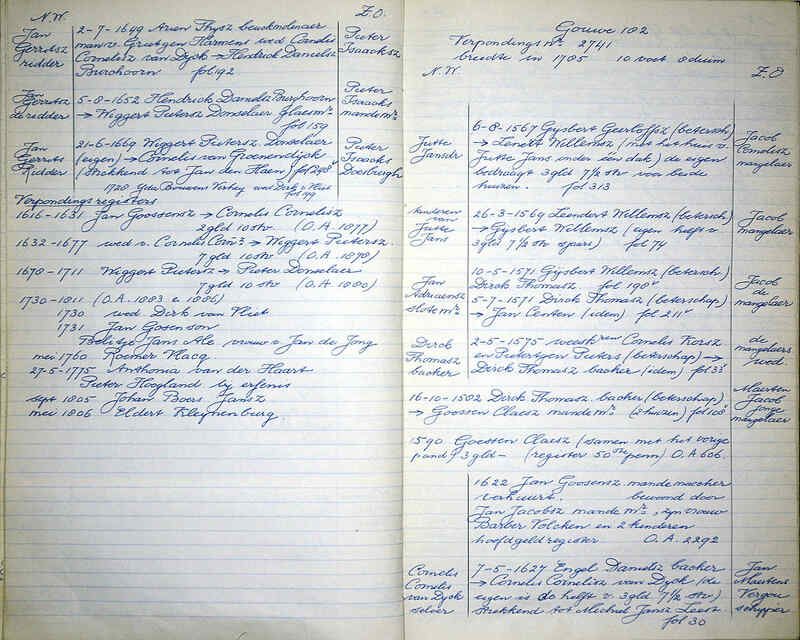 N.W.
Z.O.
Jan Gerritsz ridder
2-7-1649 Arien Thysz beuckmolenaer
man v. Grietgen Harmens wed Cornelis
Cornelisz van Dyck → Hendrick Damelisz
Burchoorn fol 92
Pieter Isaacksz
Jan Gerritsz de ridder
5-8-1652 Hendrick Damelisz Burghoorn
→ Wiggert Pietersz Donselaer glaesmr.
fol 159
Pieter Isaacks mandemr
Jan Gerrits Ridder
21-6-1669 Wiggert Pietersz. Donselaer
(eigen) → Cornelis van Groenendijck
(strekkend tot Jan den Haen) fol 298v
Pieter Isaacks Doesburgh
Verpondingsregisters
1616-1631 Jan Goossensz → Cornelis Cornelisz
2 gld 10 str (O.A. 1077)
1632-1677 wed v. Cornelis Cornsz → Wiggert Pietersz.
7 gld 10 str (O.A. 1078)
1678-1711 Wiggert Pietersz → Pieter Donselaer
7 gld 10 str (O.A. 1080)
1730-1811 (O.A. 1083 e 1086)
1730 wed Dirk van Vliet
1731 Jan Gosenson
Jans Ale vrouw v Jan de Jong
mei 1760 Roemer Vlacq
27-5-1775 Anthonia van der Haart
Pieter Hoogland by erfenis
sept 1805 Johan Boers Jansz
mei 1806 Eldert Kleynenburg.
Gouwe 182
Verpondingsnr. 2741
breedte in 1785 10 voet 8 duim
N.W.
Z.O
Jutte Jansdr
6-8-1567 Gijsbert Geerloffsz (betersch)
→ Lenert Willemsz (met het huis v.
Jutte Jans onder één dak) de eigen
bedraagt 3 gld 7½ str voor beide
huizen. fol 313
Jacob Cornelisz mangelaer
kinderen van Jutte Jans
26-3-1569 Leendert Willemsz (betersch)
→ Gysbert Willemsz (eigen helft v
3 gld 7½ str sjaers) fol 74
Jacob mangelaer
Jan Adriaensz slotemr
10-5-1571 Gijsbert Willemsz (betersch)
Dirck Thomasz fol 198v
5-7-1571 Dirck Thomasz (beterschap)
→ Jan Centen (idem) fol 211v
Jacob de mangelaer
Derck Thomasz backer
2-5-1575 weeskren Cornelis Korsz
en Pietertgen Pieters (beterschap) →
Derck Thomasz backer (idem) fol 35
de mangelaers wed.
16-10-1582 Derck Thomasz backer (beterschap)
→ Goossen Claesz mandemr (2 huizen) fol 108v
Maerten Jacob jonge mangelaer
1590 Goessen Claesz (samen met het vorige
pand) 3 gld- (register 50ste penn) O.A 606.
1622 Jan Goosensz mandemaecker
verhuert. bewoond door
Jan Jacobsz mandemr, zyn vrouw
Barber Volcken en 2 kinderen
hoofdgeldregister O.A. 2292
Cornelis Cornelis van Dyck
7-5-1627 Engel Damelisz backer
→ Cornelis Cornelisz van Dyck (de
eigen is de helft v. 3 gld 7½ str)
strekkend tot Michiel Jansz
fol 30
Jan Maertens Vergou schipper